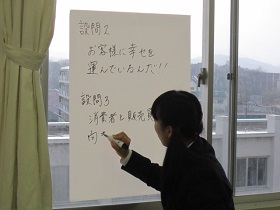 設問2
お客様に幸せを
運んでいるんだ!!
設問3
消費者と販売
向